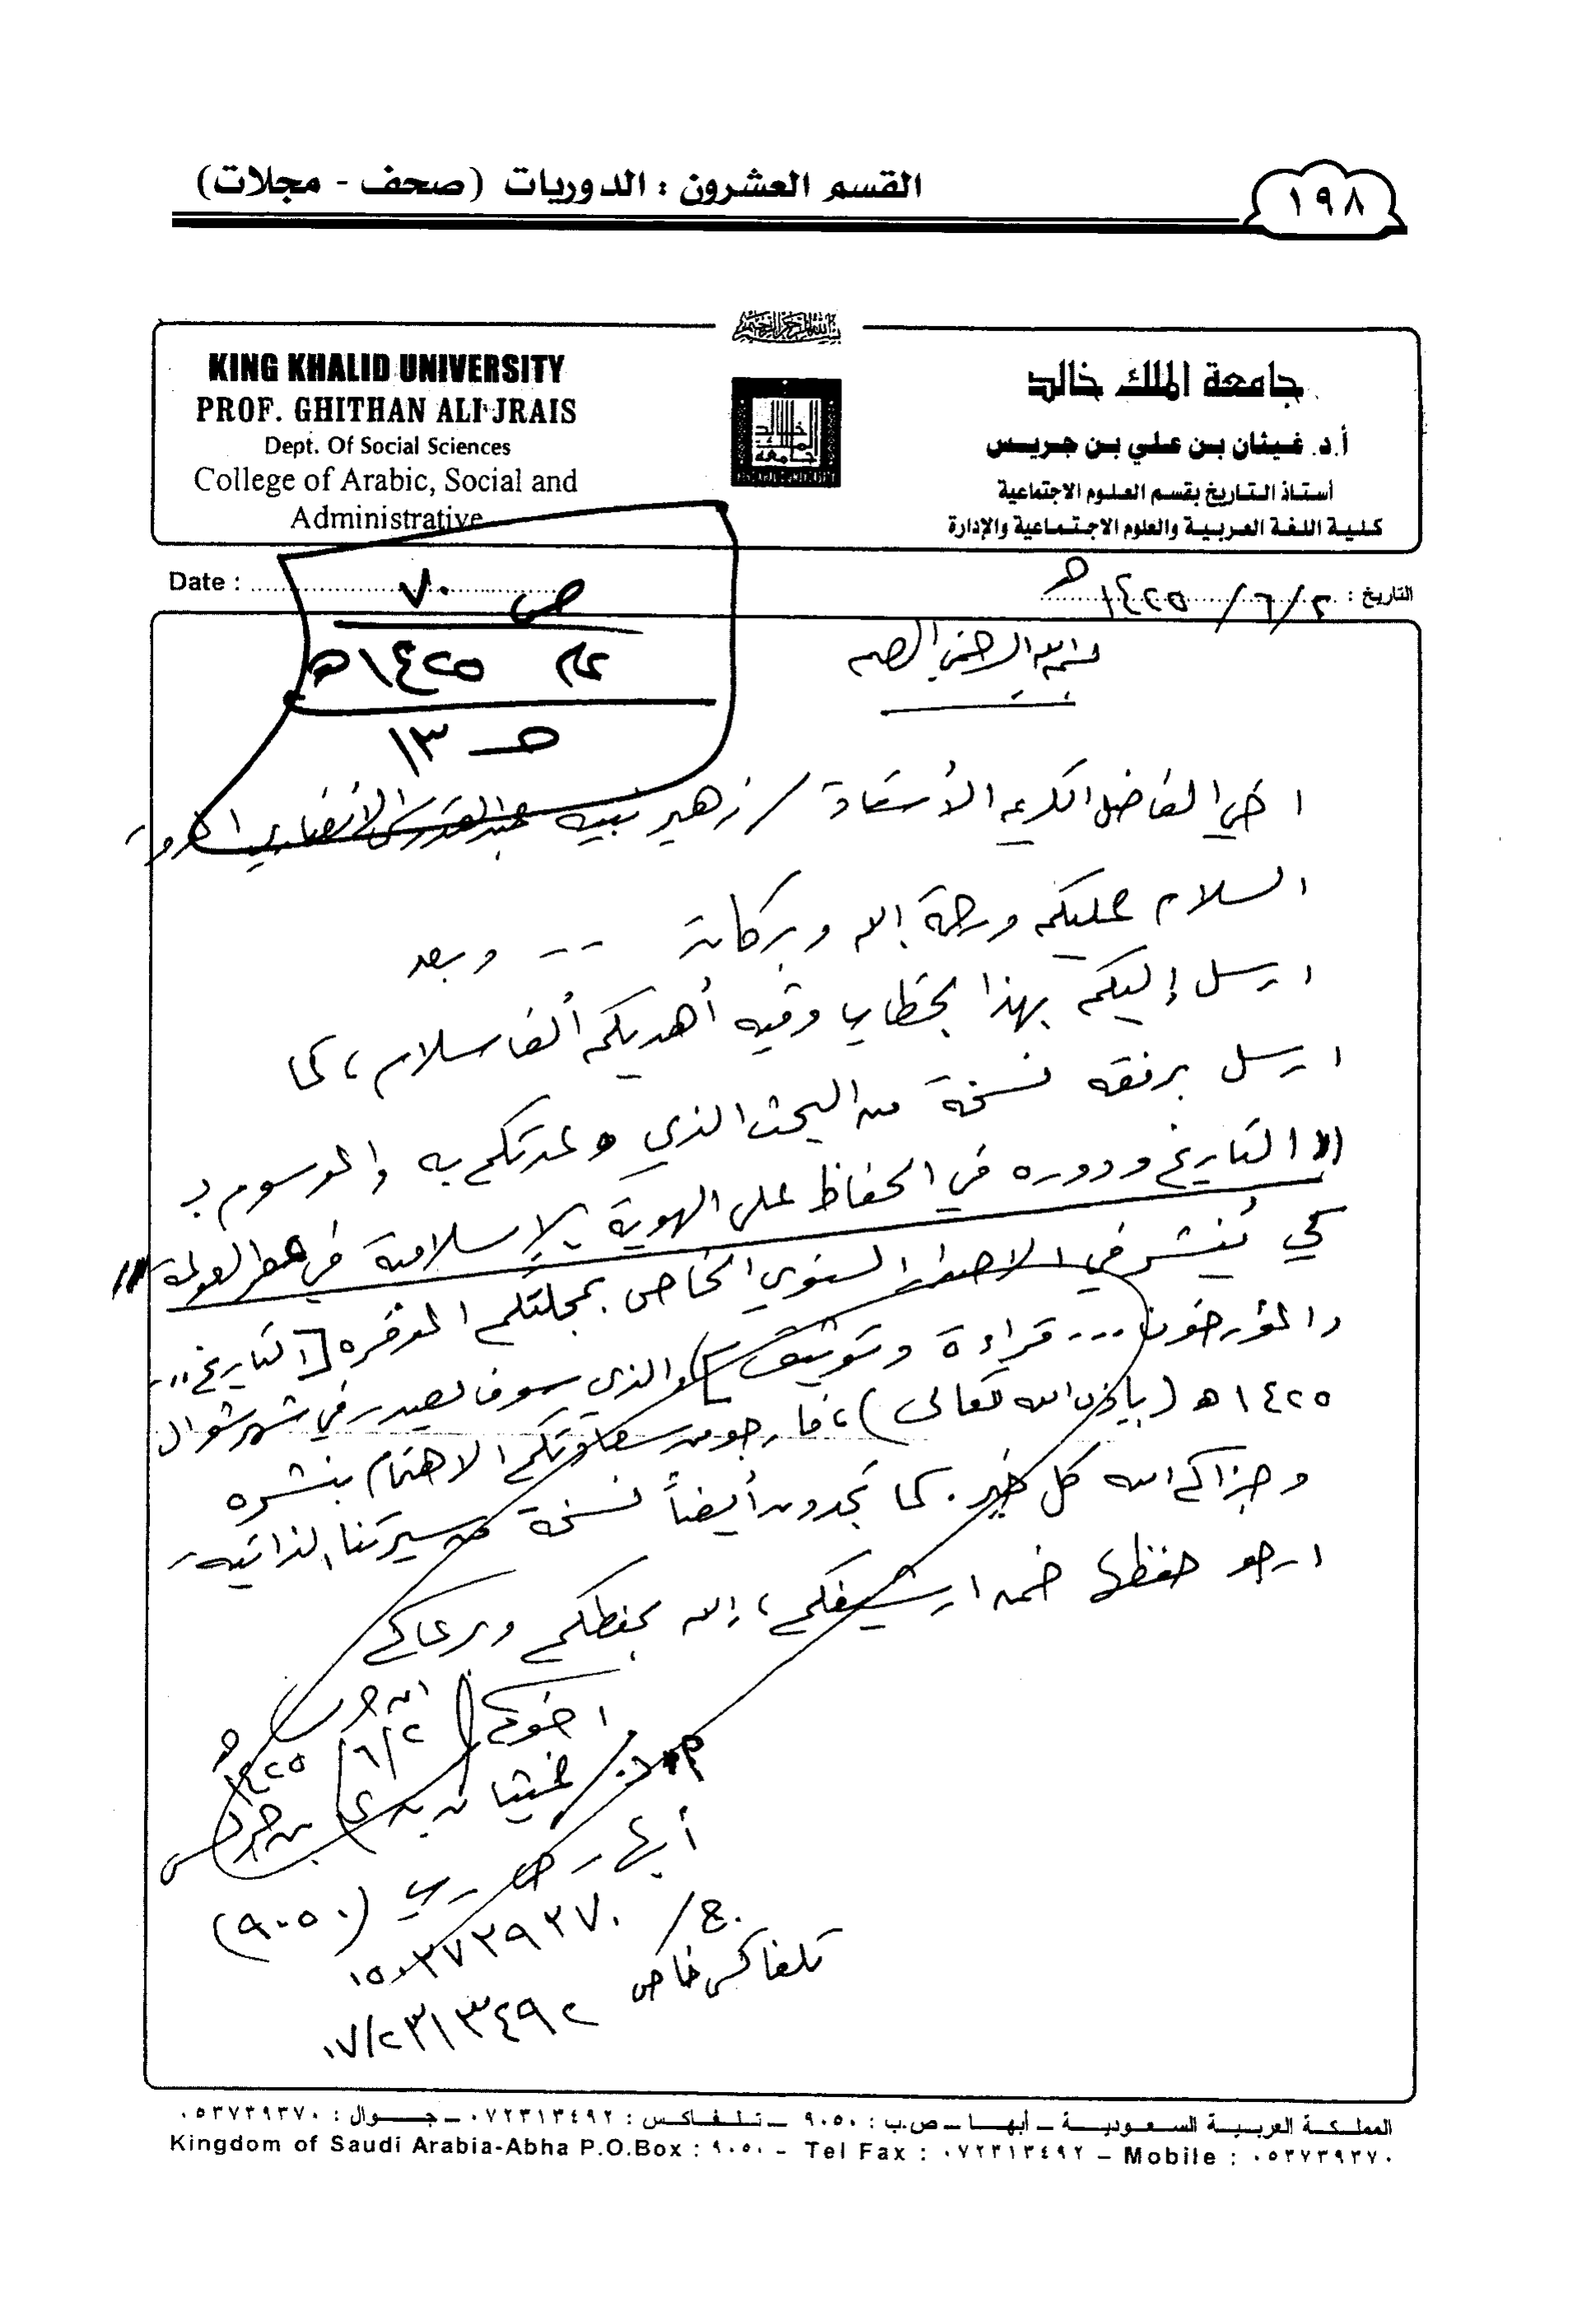 ١٩٨
القسم العشرون : الدوريات (صحف - مجلات)
جامعة الملك خالد
أ.د. غيثان بن علي بن جريس
أستاذ التاريخ بقسم العلوم الاجتماعية
كلية اللغة العربية والعلوم الاجتماعية والإدارة
KING KHALID UNIVERSITY
PROF. GHITHAN ALI JRAIS
Dept. Of Social Sciences
College of Arabic, Social and
Administrative
التاريخ : ٢/٦/١٤٢٥هـ
Date :
ص ٧٠
عام ١٤٢٥هـ
١٣
بسم الله الرحمن الرحيم
اخي الفاضل الكريم الأستاذ / زهير نبيه عبدالقدوس الأنصاري
السلام عليكم ورحمة الله وبركاته -- وبعد
ارسل إليكم بهذا الخطاب وفيه أهديكم ألف سلام، كما
ارسل برفقه نسخة من البحث الذي وعدتكم به والموسوم بـ
"التاريخ ودوره في الحفاظ على الهوية الإسلامية في عصر العولمة"
كي يُنشر في الاصدار السنوي الخاص بمجلتكم الموقره [التاريخ ..
والمؤرخون ... قراءة وتوثيق] والذي سوف يصدر في شهر شوال
١٤٢٥هـ (بإذن الله تعالى)، فارجو من سعادتكم الاهتمام بنشره
وجزاكم الله كل خير. كما تجدون أيضاً نسخة من سيرتنا الذاتية
ارجو حفظها ضمن ارشيفكم، الله يحفظكم ويرعاكم
اخوكم
٢/٦/١٤٢٥هـ
أ.د. / غيثان بن علي بن جريس
أبها - ص - ب (٩٠٥٠)
ج / ٠٥٣٧٣٩٣٧٠
تلفاكس خاص
٠٧/٢٣١٣٤٩٢
المملكة العربية السعودية – أبها – ص.ب : ٩٠٥٠ – تلفاكس : ٠٧٢٣١٣٤٩٢ – جوال : ٠٥٣٧٣٩٣٧٠
Kingdom of Saudi Arabia-Abha P.O.Box : ٩٠٥٠ - Tel Fax : ٠٧٢٣١٣٤٩٢ – Mobile : ٠٥٣٧٣٩٣٧٠